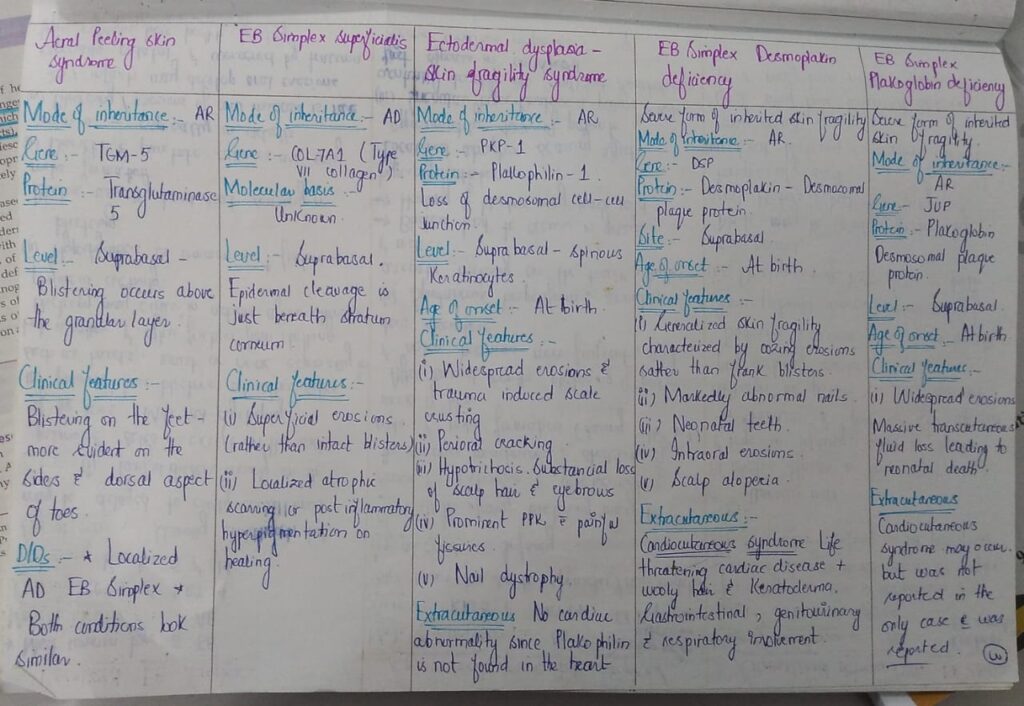 Acral Peeling Skin
Syndrome
Mode of inheritance:- AR
Gene:- TGM-5
Protein:- Transglutaminase
5
Level:- Suprabasal -
Blistering occurs above
the granular layer.
Clinical features:-
Blistering on the feet -
more evident on the
sides & dorsal aspect
of toes.
D/Ds:- * Localized
AD EB Simplex *
Both conditions look
similar.
EB Simplex Superficialis
Mode of inheritance:- AD
Gene:- COL-7A1 (Type
VII collagen)
Molecular basis:-
Unknown.
Level:- Suprabasal.
Epidermal cleavage is
just beneath stratum
corneum
Clinical features:-
(i) Superficial erosions
(rather than intact blisters)
(ii) Localized atrophic
scarring or post inflammatory
hyperpigmentation on
healing.
Ectodermal dysplasia -
Skin fragility syndrome
Mode of inheritance:- AR
Gene:- PKP-1
Protein:- Plakophilin-1.
Loss of desmosomal cell-cell
junction.
Level:- Suprabasal - Spinous
Keratinocytes
Age of onset:- At birth.
Clinical features:-
(i) Widespread erosions &
trauma induced scale
crusting
(ii) Perioral cracking
(iii) Hypotrichosis. Substancial loss
of scalp hair & eyebrows
(iv) Prominent PPK c̄ painful
fissures.
(v) Nail dystrophy.
Extracutaneous No cardiac
abnormality since Plakophilin
is not found in the heart
EB Simplex Desmoplakin
deficiency
Severe form of inherited skin fragility
Mode of inheritance:- AR.
Gene:- DSP
Protein:- Desmoplakin - Desmosomal
plaque protein.
Site:- Suprabasal
Age of onset:- At birth
Clinical features:-
(i) Generalized skin fragility
characterized by oozing erosions
rather than frank blisters.
(ii) Markedly abnormal nails.
(iii) Neonatal teeth.
(iv) Intraoral erosions.
(v) Scalp alopecia.
Extracutaneous:-
Cardiocutaneous Syndrome Life
threatening cardiac disease +
wooly hair & Keratoderma.
Gastrointestinal, genitourinary
& respiratory involvement.
EB Simplex
Plakoglobin deficiency
Severe form of inherited
skin fragility.
Mode of inheritance:-
AR
Gene:- JUP
Protein:- Plakoglobin
Desmosomal plaque
protein.
Level:- Suprabasal
Age of onset:- At birth
Clinical features:-
(i) Widespread erosions
Massive transcutaneous
fluid loss leading to
neonatal death.
Extracutaneous
Cardiocutaneous
syndrome may occur.
but was not
reported in the
only case & was
reported.